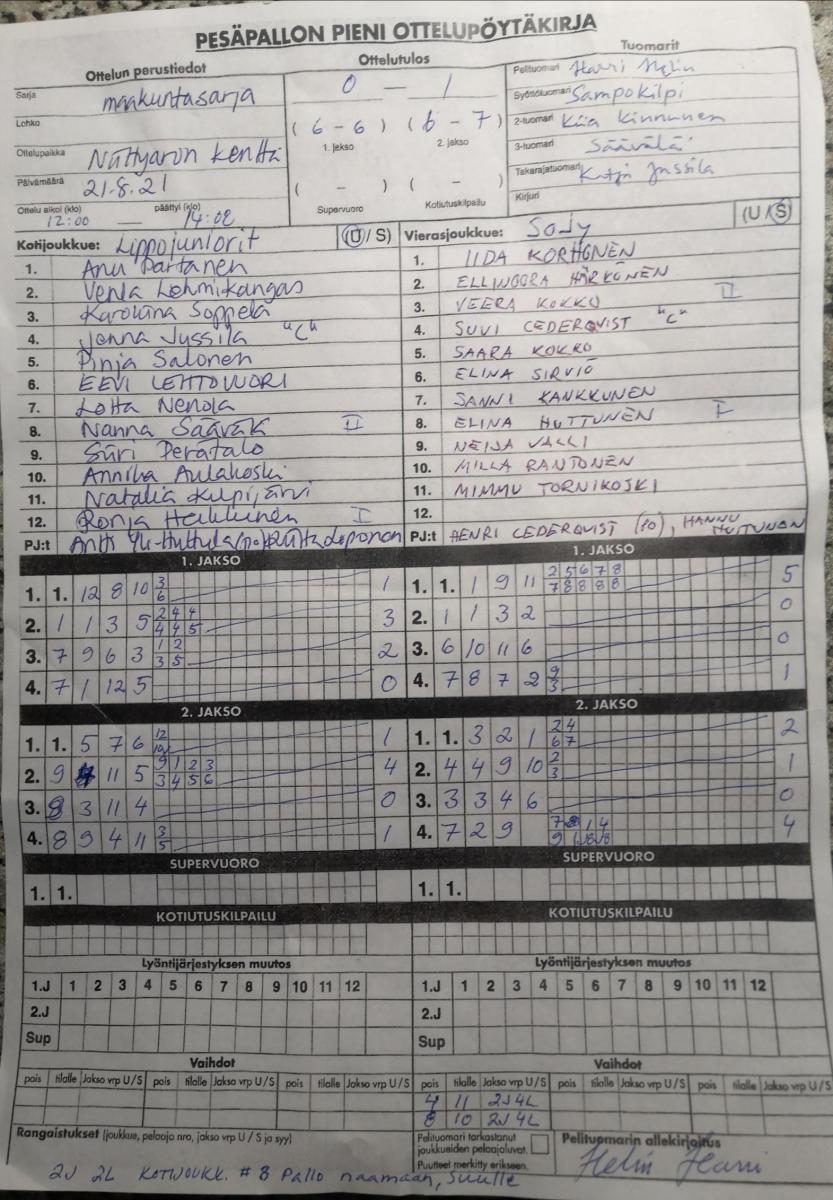 PESÄPALLON PIENI OTTELUPÖYTÄKIRJA
Ottelun perustiedot
Sarja maakuntasarja
Lohko
Ottelupaikka Nättyaron kenttä
Päivämäärä 21.8.21
Ottelu alkoi (klo) päättyi (klo)
12:00 — 14:02
Ottelutulos
0 — 1
(6 - 6) (6 - 7)
1. jakso 2. jakso
( - ) ( - )
Supervuoro Kotiutuskilpailu
Tuomarit
Pelituomari Harri Helin
Syöttötuomari Sampokilpi
2-tuomari Kiia Kinnunen
3-tuomari Säävälä
Takarajatuomari Jussila
Kirjuri
Kotijoukkue: Lippojuniorit (U / S)
1. Anu Partanen
2. Venla Lehmikangas
3. Karoliina Soppela
4. Jonna Jussila "C"
5. Pinja Salonen
6. EEVI LEHTOVUORI
7. Lotta Nenola
8. Nanna Säävälä II
9. Siiri Perätalo
10. Annika Aulakoski
11. Natalia Kupijärvi
12. Ronja Heikkinen I
PJ:t Antti Yli-Huttula (po)
Vierasjoukkue: SoJy (U / S)
1. IIDA KORHONEN
2. ELLINOORA HÄRKÖNEN
3. VEERA KOKKO II
4. SUVI CEDERQVIST "C"
5. SAARA KOKKO
6. ELINA SIRVIÖ
7. SANNI KANKKUNEN
8. ELINA HUTTUNEN I
9. NEIJA VALLI
10. MILLA RANTONEN
11. MIMMU TORNIKOSKI
12.
PJ:t HENRI CEDERQVIST (PO), HANNU HUTTUNEN
1. JAKSO
1. 1. 12 8 10 3 1
6
2. 1 1 3 5 2 4 4 3
4 4 5
3. 7 9 6 3 1 2 2
3 5
4. 7 1 12 5 0
1. JAKSO
1. 1. 1 9 11 2 5 6 7 8 5
7 8 8 8 8
2. 1 1 3 2 0
3. 6 10 11 6 0
4. 7 8 7 2 9 1
3
2. JAKSO
1. 1. 5 7 6 12 1
10
2. 9 11 5 9 1 2 3 4
3 4 5 6
3. 8 3 11 4 0
4. 8 9 4 11 3 1
5
2. JAKSO
1. 1. 3 2 1 2 4 2
6 7
2. 4 4 9 10 2 1
3
3. 3 3 4 6 0
4. 7 2 9 7 8 1 4 4
9
SUPERVUORO
1. 1.
SUPERVUORO
1. 1.
KOTIUTUSKILPAILU
KOTIUTUSKILPAILU
Lyöntijärjestyksen muutos
1.J 1 2 3 4 5 6 7 8 9 10 11 12
2.J
Sup
Lyöntijärjestyksen muutos
1.J 1 2 3 4 5 6 7 8 9 10 11 12
2.J
Sup
Vaihdot
pois tilalle Jakso vrp U/S pois tilalle Jakso vrp U/S pois tilalle Jakso vrp U/S
Vaihdot
pois tilalle Jakso vrp U/S pois tilalle Jakso vrp U/S pois tilalle Jakso vrp U/S
4 11 2J 4L
8 10 2J 4L
Rangaistukset (joukkue, pelaaja nro, jakso vrp U / S ja syy)
2J 2L KOTIJOUKK. # 8 Pallo naamaan, suulle
Pelituomari tarkastanut
joukkueiden pelaajaluvat.
Puutteet merkitty erikseen.
Pelituomarin allekirjoitus
Helin Harri